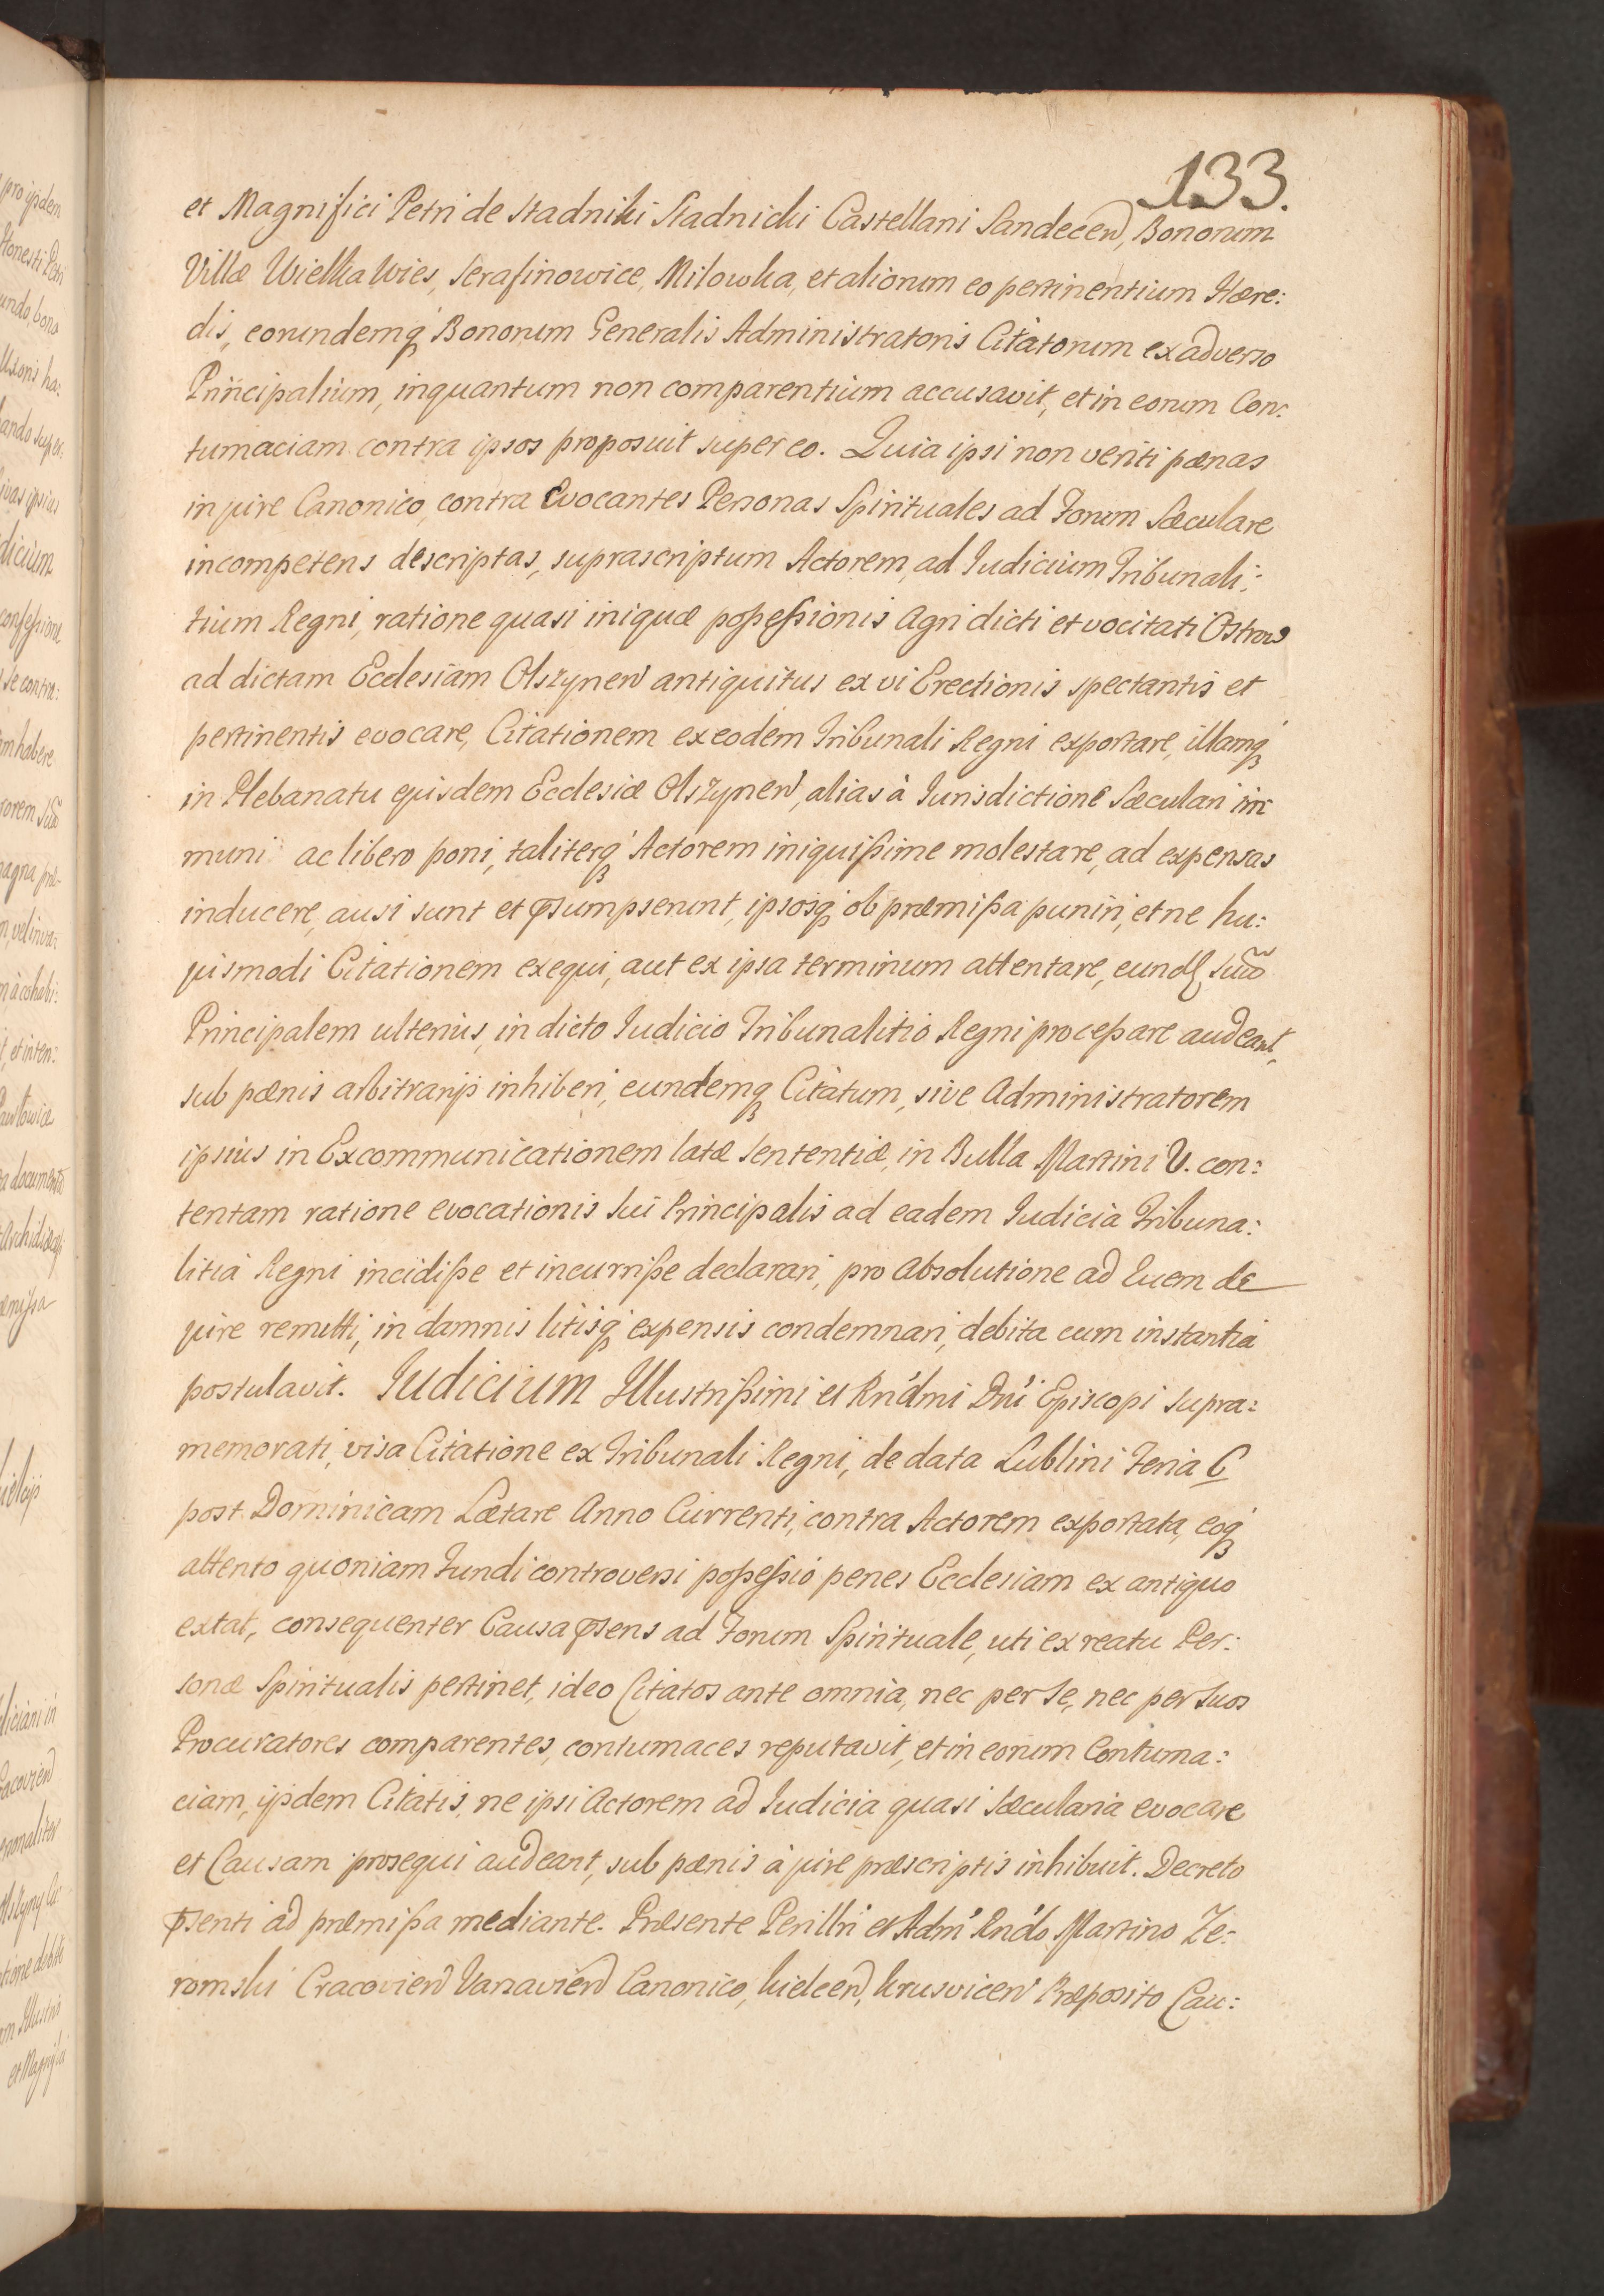 133.
et Magnifici Petri de Stadniki Stadnicki Castellani Sandecen, Bonorum
Villæ Wielka Wies, Serafinowice, Milowka, et aliorum eo pertinentium Hære:
dis, eorundemq́ Bonorum Generalis Administratoris Citatorum ex adverso
Principalium, inquantum non comparentium accusavit, et in eorum Con:
tumaciam contra ipsos proposuit super eo. Quia ipsi non veriti pænas
in jure Canonico, contra Evocantes Personas Spirituales ad Forum Sæculare
incompetens descriptas, suprascriptum Actorem, ad Iudicium Tribunali:
tium Regni, ratione quasi iniquæ poßeßionis Agri dicti et vocitati Ostrow
ad dictam Ecclesiam Olszynen antiquitus ex vi Erectionis spectantis et
pertinentis evocare, Citationem ex eodem Tribunali Regni exportare, illamq́
in Plebanatu ejusdem Ecclesiæ Olszynen, alias à Iurisdictione Sæculari im
muni ac libero poni, taliterq́ Actorem iniquißime molestare, ad expensas
inducere, ausi sunt et p̄sumpserunt, ipsosq́ ob præmißa puniri, et ne hu:
jusmodi Citationem exequi, aut ex ipsa terminum attentare, eund. suũ
Principalem ulterius, in dicto Iudicio Tribunalitio Regni proceßare audeant,
sub pænis arbitrarijs inhiberi, eundemq Citatum, sive Administratorem
ipsius in Excommunicationem latæ Sententiæ, in Bulla Martini V. con:
tentam ratione evocationis Sui Principalis ad eadem Iudicia Tribuna:
litia Regni incidiße et incurriße declarari, pro Absolutione ad Quem de
jure remitti, in damnis litisq́ expensis condemnari, debita cum instantia
postulavit. Iudicium Illustrißimi et Rńdmi Dńi Episcopi supra:
memorati, visa Citatione ex Tribunali Regni, de data Lublini Feria 6
post Dominicam Lætare Anno Currenti, contra Actorem exportata, eoq́
attento quoniam Fundi controversi poßeßio penes Ecclesiam ex antiquo
extat, consequenter Causa p̄sens ad Forum Spirituale, uti ex reatu Per:
sonæ Spiritualis pertinet, ideo Citatos ante omnia, nec per Se, nec per Suos
Procuratores comparentes, contumaces reputavit, et in eorum Contuma:
ciam, ijsdem Citatis, ne ipsi Actorem ad Iudicia quasi Sæcularia evocare
et Causam prosequi audeant, sub pænis à jure præscriptis inhibuit. Decreto
p̄senti ad præmißa mediante. Præsente Perillri et Adm Rńdo Martino Ze:
romski Cracovien Varsavien Canonico, Kielcen, Krusvicen Præposito Cau: